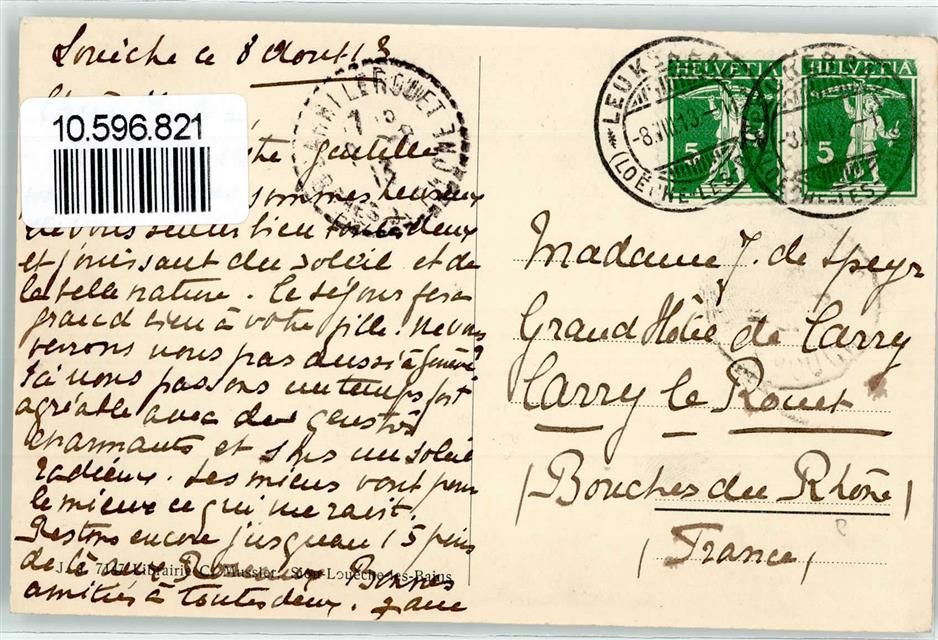 Louèche ce 8 Août 13
10.596.821
gentille
sommes heureux
de vous sentir bien toutes deux
et jouissant du soleil et de
la belle nature. Ce séjour fera
grand bien à votre fille. Ne vous
verrons nous pas aussi à Genève?
Ici nous passons un temps fort
agréable avec des gens très
charmants et sous un soleil
radieux. Les miens vont pour
le mieux ce qui me ravit.
Restons encore jusqu'au 15 puis
de là aux Bonnes
J. 7147 Librairie C. Mussler, Sion-Louèche-les-Bains
amitiés à toutes deux.
CARRY LE ROUET
HELVETIA
5
HELVETIA
5
LEUKERBAD
-8.VIII.13.-
(LOECHE-LES
Madame J. de Speyr
Grand Hôtel de Carry
Carry le Rouet
(Bouches du Rhône)
(France)